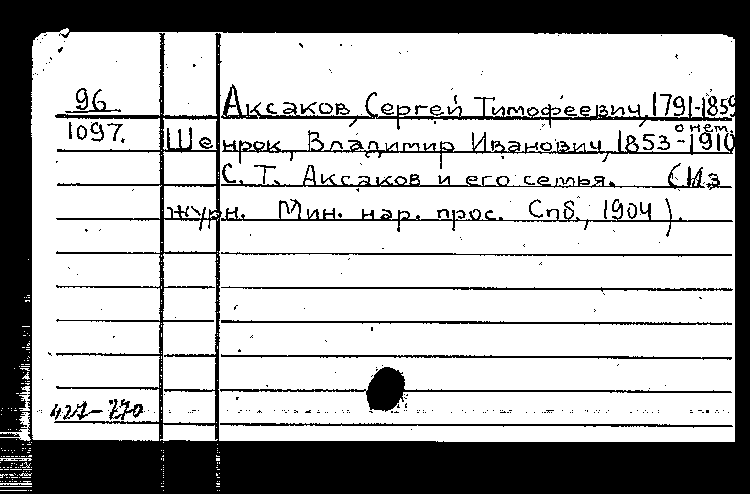 96 Аксаков, Сергей Тимофеевич, 1791-1859
о нем.
1097. Шенрок, Владимир Иванович, 1853-1910
С. Т. Аксаков и его семья. (Из
журн. Мин. нар. прос. Спб., 1904).